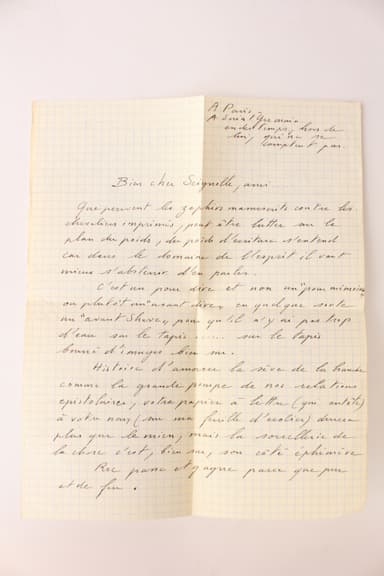 A Paris.
A Saint Germain
en des temps, hors de
lui, qui ne se
comptent pas.
Bien cher Seignolle, ami
Que peuvent les zéphirs manuscrits contre les
chevaliers imprimés, peut être lutter sur le
plan du poids, du poids d'écriture s'entend
car dans le domaine de l'esprit il vaut
mieux s'abstenir d'en parler.
C'est un pour dire et non un "pour mémoire"
ou plutôt un "avant dire", en quelque sorte
un "avant , pour qu'il n'y ai pas trop
d'eau sur le tapis ...... sur le tapis
bourré d'images bien sur.
Histoire d'amorcer la sève de la
comme la grande pompe de nos relations
épistolaires, votre papier à lettre (qui entête)
à votre nom (sur ma feuille d'écolier) durera
plus que le mien, mais la sorcellerie de
la chose c'est, bien sur, son côté éphémère
passe et gagne parce que pur
et de feu.